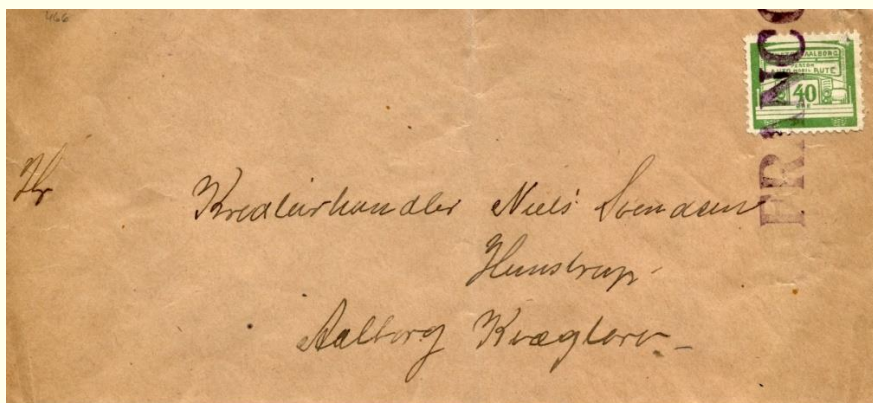 466
FRANCO
AALBORG
RUTE
40
Hr
Kreaturhandler Niels Svendsen
Hunstrup
Aalborg Kvægtorv